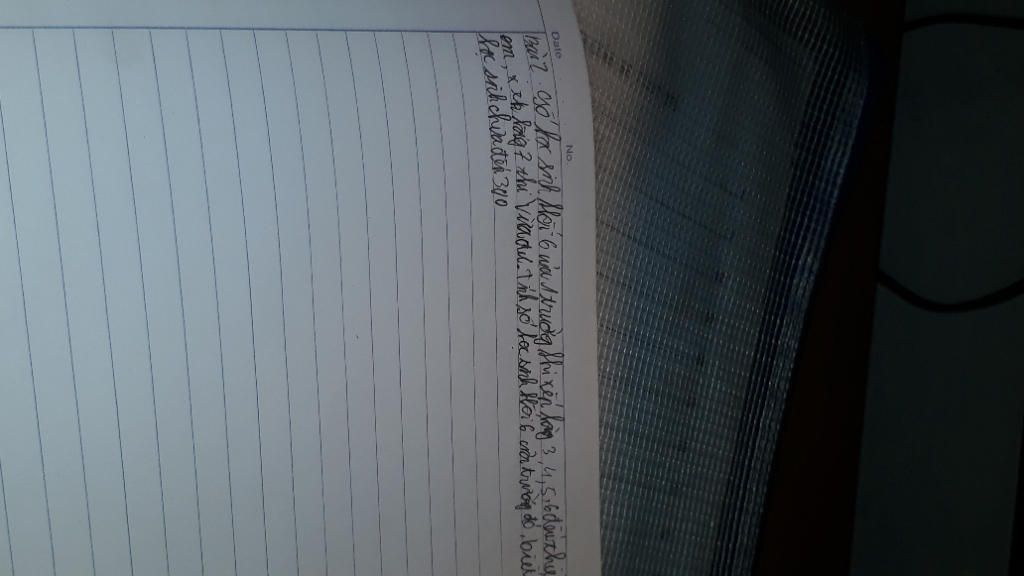 Date No.
Bài 7. Số học sinh khối 6 của 1 trường khi xếp hàng 3, 4, 5, 6 đều
em, xếp hàng 7 thì vừa đủ. Tính số học sinh khối 6 của trường đó, biết
học sinh chưa đến 340